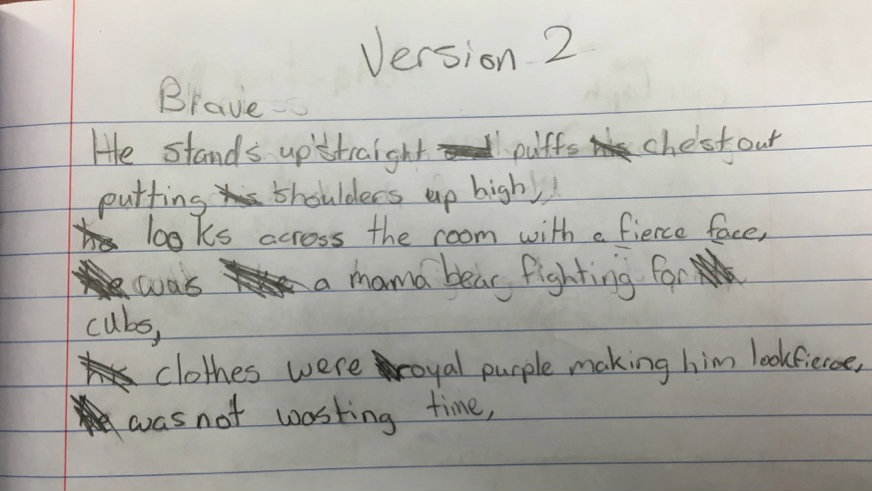 Version 2
Brave
He stands up straight puffs chest out
putting shoulders up high,
looks across the room with a fierce face,
was a mama bear fighting for
cubs,
clothes were royal purple making him look fierce,
was not wasting time,